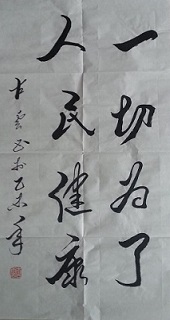 一切为了
人民健康
书于乙未年